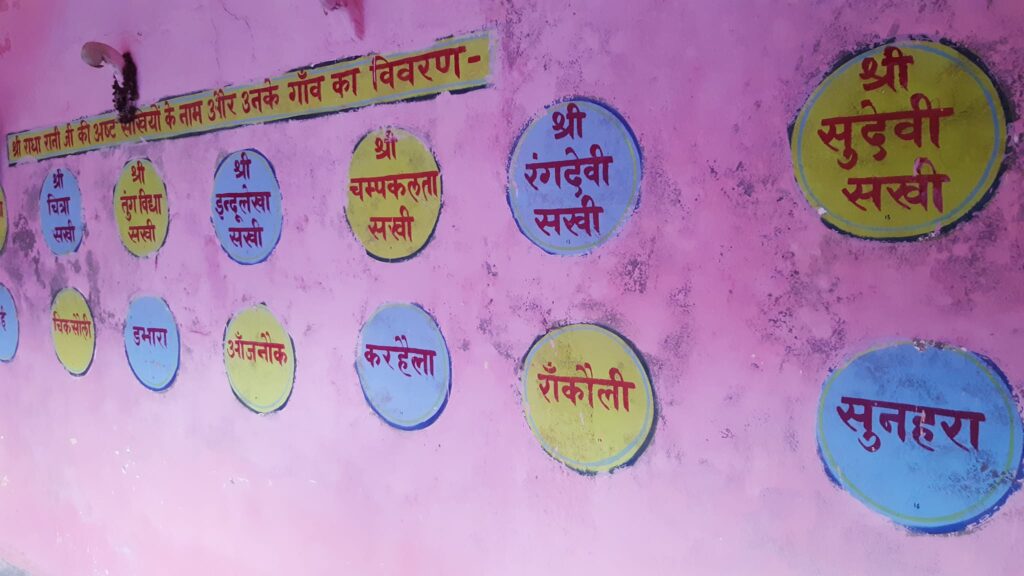 श्री राधा रानी जी की अष्ट सखियों के नाम और उनके गाँव का विवरण-
श्री
चित्रा
सखी
श्री
तुंग विधा
सखी
श्री
इन्दूलेखा
सखी
श्री
चम्पकलता
सखी
श्री
रंगदेवी
सखी
श्री
सुदेवी
सखी
चिकसौली
डभारा
आँजनौक
करहैला
राँकौली
सुनहरा